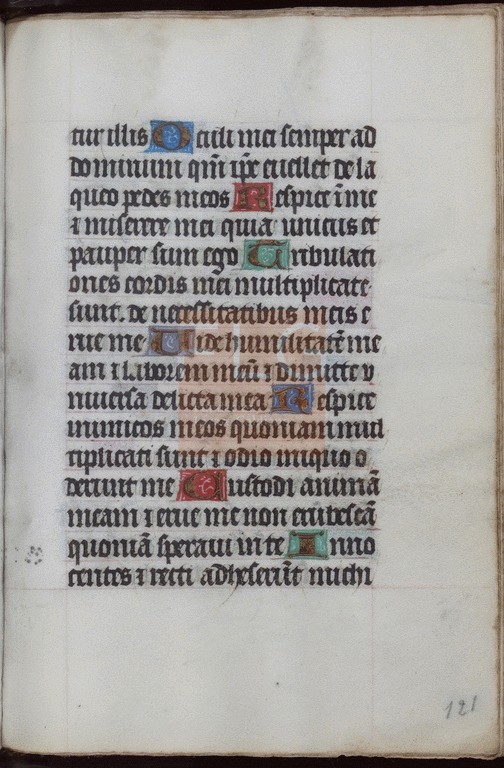 tur illis Oculi mei semper ad
dominum qm̄ ip̄e euellet de la
queo pedes meos Respice ī me
⁊ miserere mei quia unicus et
pauper sum ego Tribulati
ones cordis mei multiplicate
sunt. de necessitatibus meis e
rue me Uide humilitatē me
am ⁊ laborem meū ⁊ dimitte v
niuersa delicta mea Respice
inimicos meos quoniam mul
tiplicati sunt ⁊ odio iniquo o
derunt me Custodi animā
meam ⁊ erue me non erubescā
quoniā speraui in te Inno
centes ⁊ recti adheserūt michi
121